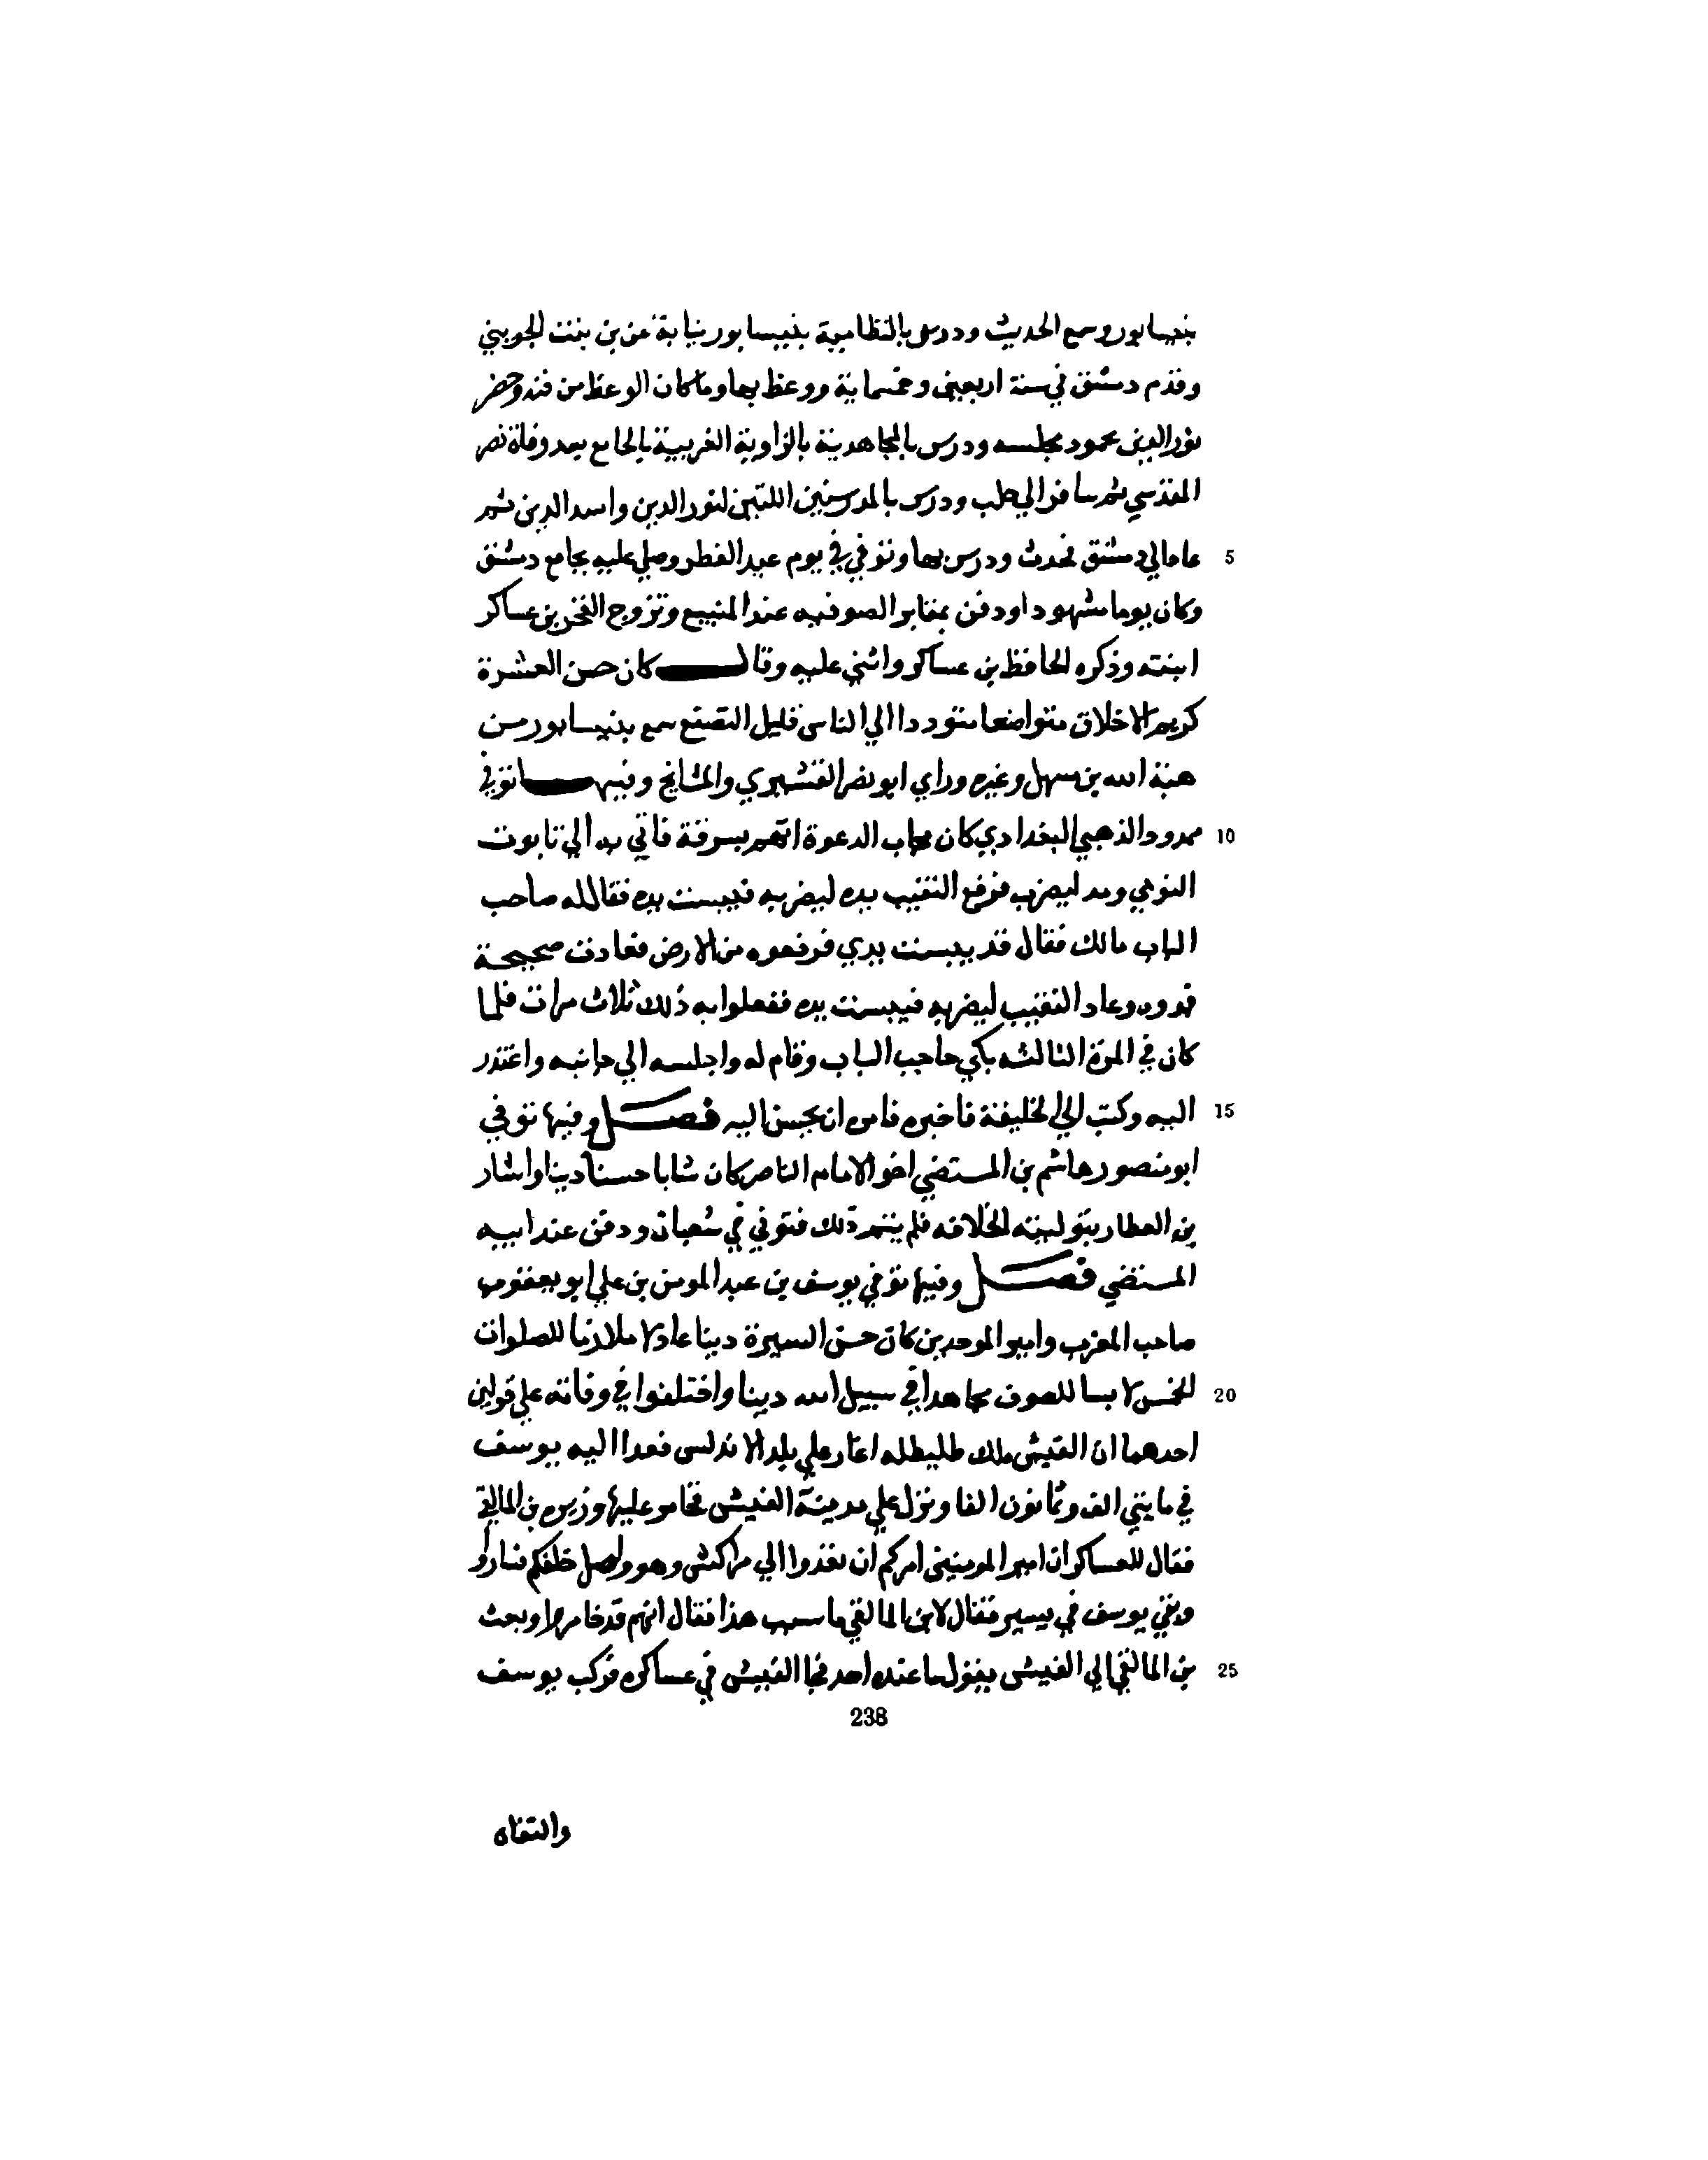 بنيسابور وسمع الحديث ودرس بالنظامية بنيسابور نيابة عن بن بنت الجويني
وقدم دمشق في سنة اربعين وخمسماية ووعظ بها وما كان الوعظ من فنه وحضر
نور الدين محمود مجلسه ودرس بالمجاهدية بالزاوية الغربية بالجامع بعد وفاة نصر
المقدسي ثم سافر الي حلب ودرس بالمدرستين اللتين لنور الدين واسد الدين ثم
5 عاد الي دمشق فحدث ودرس بها وتوفي في يوم عيد الفطر وصلي عليه بجامع دمشق
وكان يوما مشهودا ودفن بمقابر الصوفيه عند المنيبع وتزوج الفخر بن عساكر
ابنته وذكره الحافظ بن عساكر واثني عليه وقال كان حسن العشرة
كريم الاخلاق متواضعا متوددا الي الناس قليل التصنع سمع بنيسابور من
هبة الله بن سهل وغيره وراي ابو نصر القشيري والمشايخ وفيها توفي
10 ممدود الذهبي البغدادي كان مجاب الدعوة اتهم بسرقة فاتي به الي تابوت
النوبي ومد ليضرب فرفع النقيب يده ليضربه فيبست يده فقال له صاحب
الباب مالك فقال قد يبست يدي فرفعوه من الارض فعادت صحيحة
فمدوه وعاد النقيب ليضربه فيبست يده ففعلوا به ذلك ثلاث مرات فلما
كان في المرة الثالثه بكي حاجب الباب وقام له واجلسه الي جانبه واعتذر
15 اليه وكتب الي الخليفة فاخبره فامر ان يحسن اليه فصل وفيها توفي
ابو منصور هاشم بن المستضي اخو الامام الناصر كان شابا حسنا دينا واشار
بن العطار بتوليته الخلافه فلم يتم ذلك فتوفي في شعبان ودفن عند ابيه
المستضي فصل وفيها توفي يوسف بن عبد المومن بن علي ابو يعقوب
صاحب المغرب وامير الموحدين كان حسن السيرة دينا عادلا ملازما للصلوات
20 الخمس لابسا للصوف مجاهدا في سبيل الله دينا واختلفوا في وفاته علي قولين
احدهما ان الفنيش ملك طليطله اغار علي بلد الاندلس فعدا اليه يوسف
في مايتي الف وثمانون الفا ونزل علي مدينة الفنيش فخامر عليها وزيره بن المالقي
فقال للعساكر ان امير المومنين امركم ان تغدوا الي مراكش وهو واصل خلفكم فساروا
وبقي يوسف في يسير فقال لابن المالقي ما سبب هذا فقال انهم قد خامروا وبعث
25 بن المالقي الي الفنيش يقول ما عنده احد فجا الفنيش في عساكره فركب يوسف
238
والتقاه